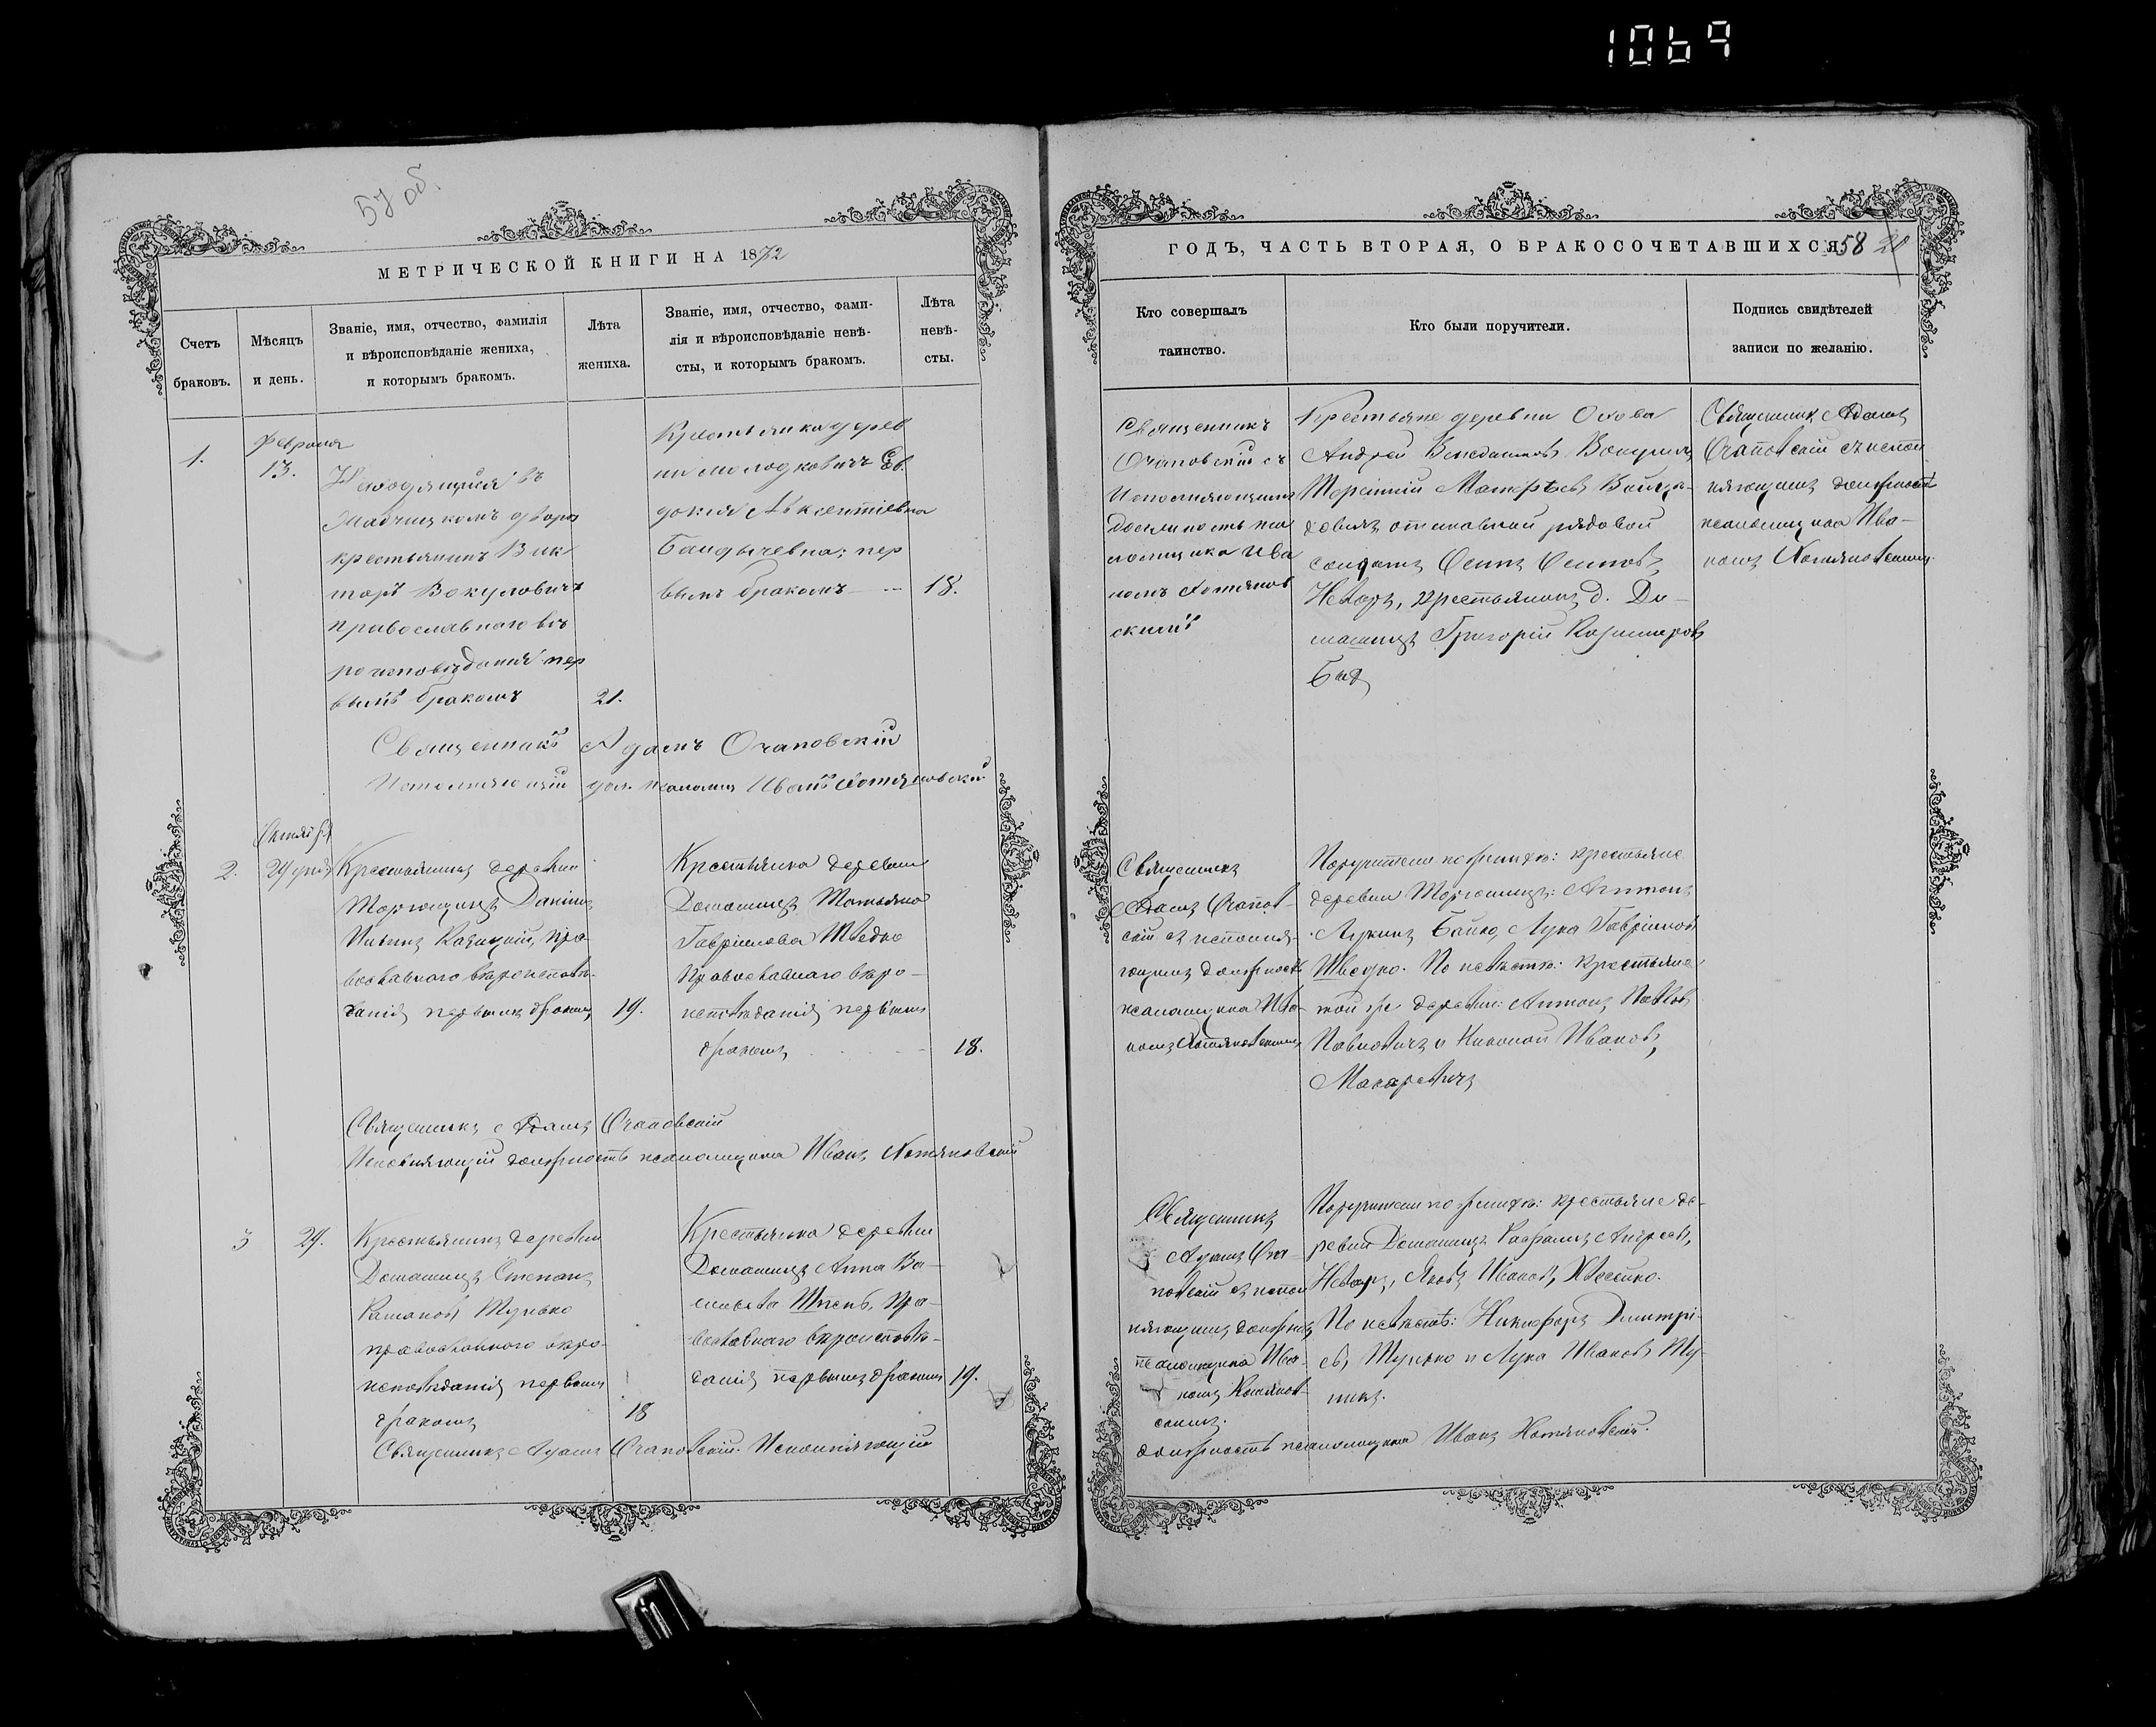 1069
57 об.
МЕТРИЧЕСКОЙ КНИГИ НА 1872
Счетъ
браковъ.
Мѣсяцъ
и день.
Званіе, имя, отчество, фамилія
и вѣроисповѣданіе жениха,
и которымъ бракомъ.
Лѣта
жениха.
Званіе, имя, отчество, фами-
лія и вѣроисповѣданіе невѣ-
сты, и которымъ бракомъ.
Лѣта
невѣ-
сты.
1.
Февраля
13.
Находящійся въ
дворѣ
крестьянинъ Вик
торъ Вокуловичъ
православнаго вѣ
роисповѣданія пер
вымъ бракомъ
21.
Крестьянка дерев
ни Молодковичъ Ев
докія Авксентіевна
Бандычевна; пер
вымъ бракомъ
18.
Священникъ Адамъ Очаповскій
Исполняющій дол. псаломщ Иванъ Хотяновскій
Октября
2.
24
Крестьянинъ деревни
Даніилъ
пра-
вославнаго вѣроисповѣ-
данія первымъ бракомъ
19.
Крестьянка деревни
Домашицъ Татьяна
Гавріилова Шведко
Православнаго вѣро-
исповѣданія первымъ
бракомъ
18.
Священникъ Адамъ Очаповскій
Исполняющій должность псаломщика Иванъ Хотяновскій
3
24.
Крестьянинъ деревни
Домашицъ Степанъ
Романовъ
православнаго вѣро-
исповѣданія первымъ
бракомъ
18
Крестьянка деревни
Домашицъ Анна Ва-
сильева пра-
вославнаго вѣроисповѣ-
данія первымъ бракомъ
19.
Священникъ Адамъ Очаповскій. Исполняющій
ГОДЪ, ЧАСТЬ ВТОРАЯ, О БРАКОСОЧЕТАВШИХСЯ
58
Кто совершалъ
таинство.
Кто были поручители.
Подпись свидѣтелей
записи по желанію.
Священникъ
Очаповскій съ
Исполняющимъ
должность пса
ломщика Ива
номъ Хотянов
скимъ
Крестьяне деревни Охова
Андрей Венедиктовъ Вокуличъ
Терентій Матфѣевъ
отставной рядовой
солдатъ Осипъ Осиповъ
Невара, крестьянинъ д. До-
машицъ Григорій Казимировъ
Священникъ Адамъ
Очаповскій съ испол
няющимъ должность
псаломщика Ива-
номъ Хотяновскимъ
Священникъ
Адамъ Очапов-
скій съ исполня-
ющимъ должность
псаломщика Ива-
номъ Хотяновскимъ
Поручители по женихѣ: крестьяне
деревни Антонъ
Лукинъ Байко, Лука Гавріиловъ
Шведко. По невѣстѣ: крестьяне
той же деревни: Антонъ Павловъ
Павловичъ и Ивановъ
Макаревичъ
Священникъ
Адамъ Оча-
повскій съ испол
няющимъ должность
псаломщика Ива-
номъ Хотянов-
скимъ.
Поручители по женихѣ: крестьяне де-
ревни Домашицъ Рафаилъ Андреевъ,
Невара, Яковъ Ивановъ
По невѣстѣ: Никифоръ Димитрі-
евъ и Лука Ивановъ
должность псаломщика Иванъ Хотяновскій.